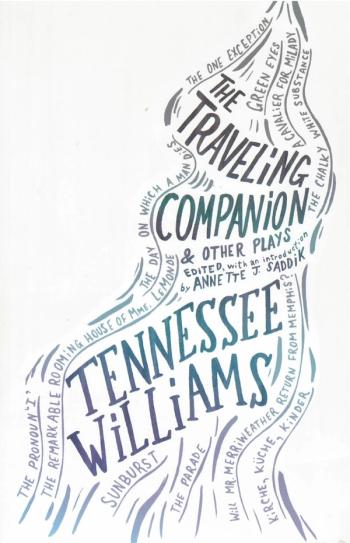 THE ONE EXCEPTION
GREEN EYES
A CAVALIER FOR MILADY
THE CHALKY WHITE SUBSTANCE
THE
TRAVELING
COMPANION
& OTHER PLAYS
EDITED, with an introduction
by ANNETTE J. SADDIK
THE DAY ON WHICH A MAN DIES
TENNESSEE
WILLIAMS
THE PRONOUN 'I'
THE REMARKABLE ROOMING HOUSE OF MME. LEMONDE
SUNBURST
THE PARADE
WILL MR. MERRIWEATHER RETURN FROM MEMPHIS?
KIRCHE, KÜCHE, KINDER